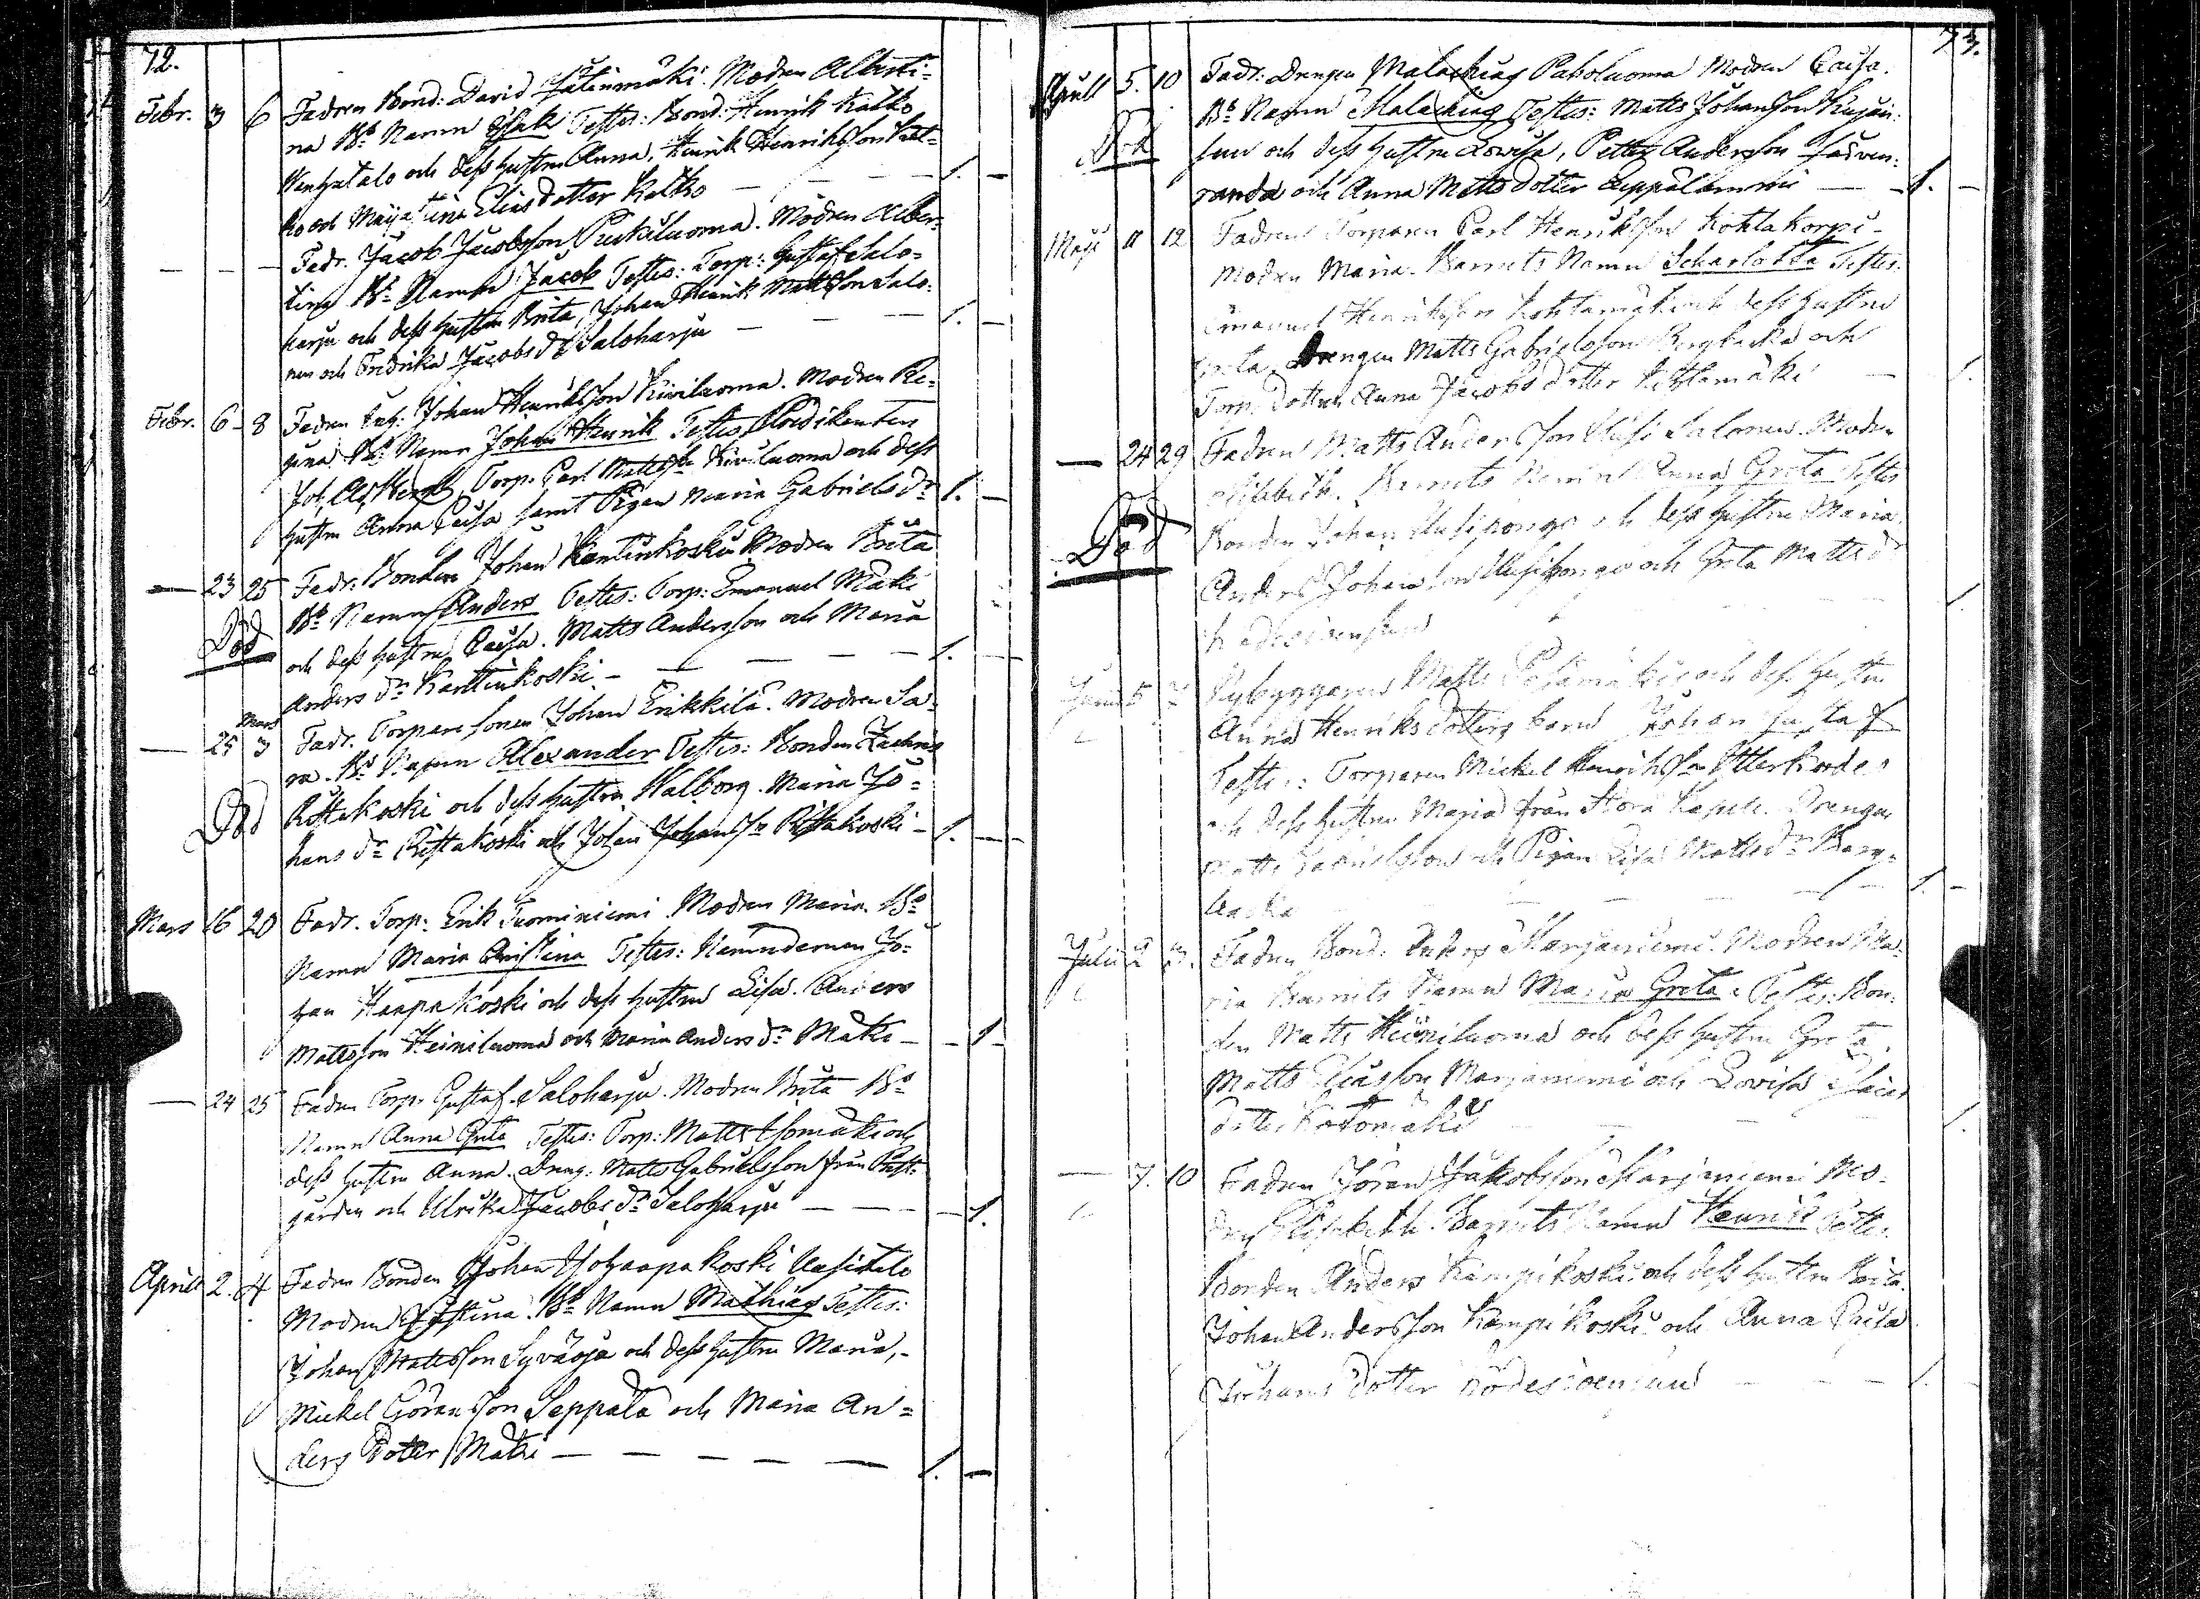 72.
Febr. 3 6 Fadren Bond: David Jätinmäki. Modren Alberti=
na Bs Namn Isak Testes: Bond: Henrik Katko
Wenhatalo och dess hustru Anna, Henrik Henriksson Kat=
ko och Maija Stina Elias dotter Katko — — — 1. —
— — — Fadr. Jacob Jacobsson Puskiluoma. Modren Alber=
tina Bs Namn Jacob Testes: Torp: Gustaf Salo=
harju och dess hustru Brita, Johan Henrik Mattsson Salo=
nen och Fredrika Jacobs dr Saloharju — — — 1. —
Febr. 6 8 Fadren Inh: Johan Henriksson Kiviluoma. Modren Re=
gina Bs Namn Johan Henrik Testes Predikanten
Joh, Torp. Carl Mattss: Kiviluoma och dess
hustru Anna Caisa samt Pigan Maria Gabriels dr 1. —
— 23 25 Fadr. Bonden Johan Kantinkoski Modren Brita
Bs Namn Anders Testes: Torp: Emanuel Mäki
Död och dess hustru Caisa. Matts Andersson och Maria
Anders dr Kantinkoski. — — — 1. —
— 25 Mars 3 Fadr. Torpare sonen Johan Erikkilä. Modren Sa=
ra. Bs Namn Alexander Testes: Bonden Zachris
Död Ristakoski och dess hustru Walborg. Maria Jo=
hans dr Ristakoski och Johan Johanss: Ristakoski — 1. —
Mars 16 20 Fadr. Torp: Erik Tuominiemi Modren Maria. Bs
Namn Maria Christina Testes: Nämndeman Jo=
han Haapakoski och dess hustru Lisa. Anders
Mattsson Heiniluoma och Maria Anders dr Mäki — — 1
— 24 25 Fadren Torp. Gustaf Saloharju. Modren Brita Bs
Namn Anna Greta Testes: Torp: Matts Isomäki och
dess hustru Anna. Dreng: Matts Gabrielsson från Prest=
gården och Ulrika Jacobs dr Saloharju — — — 1.
Aprill 2. 4 Fadren Bonden Johan Isohaapakoski Uusitalo
Modren Justina. Bs Namn Mathias Testes:
Johan Mattsson Syväoja och dess hustru Maria,
Mickel Göransson Seppälä och Maria An=
ders Dotter Mäki — — — — — 1. —
73.
Aprill 5. 10 Fadr: Drengen Malachias Paholuoma Modren Caisa.
Bs Namn Malachias Testes: Matts Johansson Kujan=
Död suu och dess hustru Lovisa, Petter Andersson Järven=
randa och Anna Matts dotter Leppälammi — 1. —
Maji 11 12 Fadren Torparen Carl Henriksson Kohtakorpi
Modren Maria. Barnets Namn Scharlotta Testes.
Emanuel Henriksson Kohtamäki och dess hustru
Greta, Drengen Matts Gabrielsson Bergbacka och
Torp. dottren Anna Jacobs dotter Kohtamäki — 1.
— 24 29 Fadren Matts Andersson Uusi Salonen. Modren
Elisabeth. Barnets Namn Anna Greta Testes
Död Bonden Johan Uusipongo och dess hustru Maria.
Anders Johansson Uusipongo och Greta Matts dr
1.
Junii 5 7 Nybyggaren Matts Petämäki och dess hustru
Anna Henriks dotters barn Johan Gustaf
Testes: Torparen Mickel Henriksson Itterkorde
och dess hustru Maria från Storå Kapell. Drengen
Matts Gabrielsson och Pigan Lisa Matts dr Berg=
backa — — — 1. —
Julii 2 3. Fadren Bond. Anders Marjaniemi. Modren Ma=
ria Barnets Namn Maria Greta. Testes: Bon=
den Matts Heiniluoma och dess hustru Greta,
Matts Eliasson Marjaniemi och Lovisa Elias
dotter Kotomäki — — 1.
— 7. 10 Fadren Jöran Jakobsson Marjaniemi Mo=
dren Elisabeth Barnets Namn Henrik Testes.
Bonden Anders Kampikoski och dess hustru Brita.
Johan Andersson Kampikoski och Anna Caisa
Johans dotter — — 1.